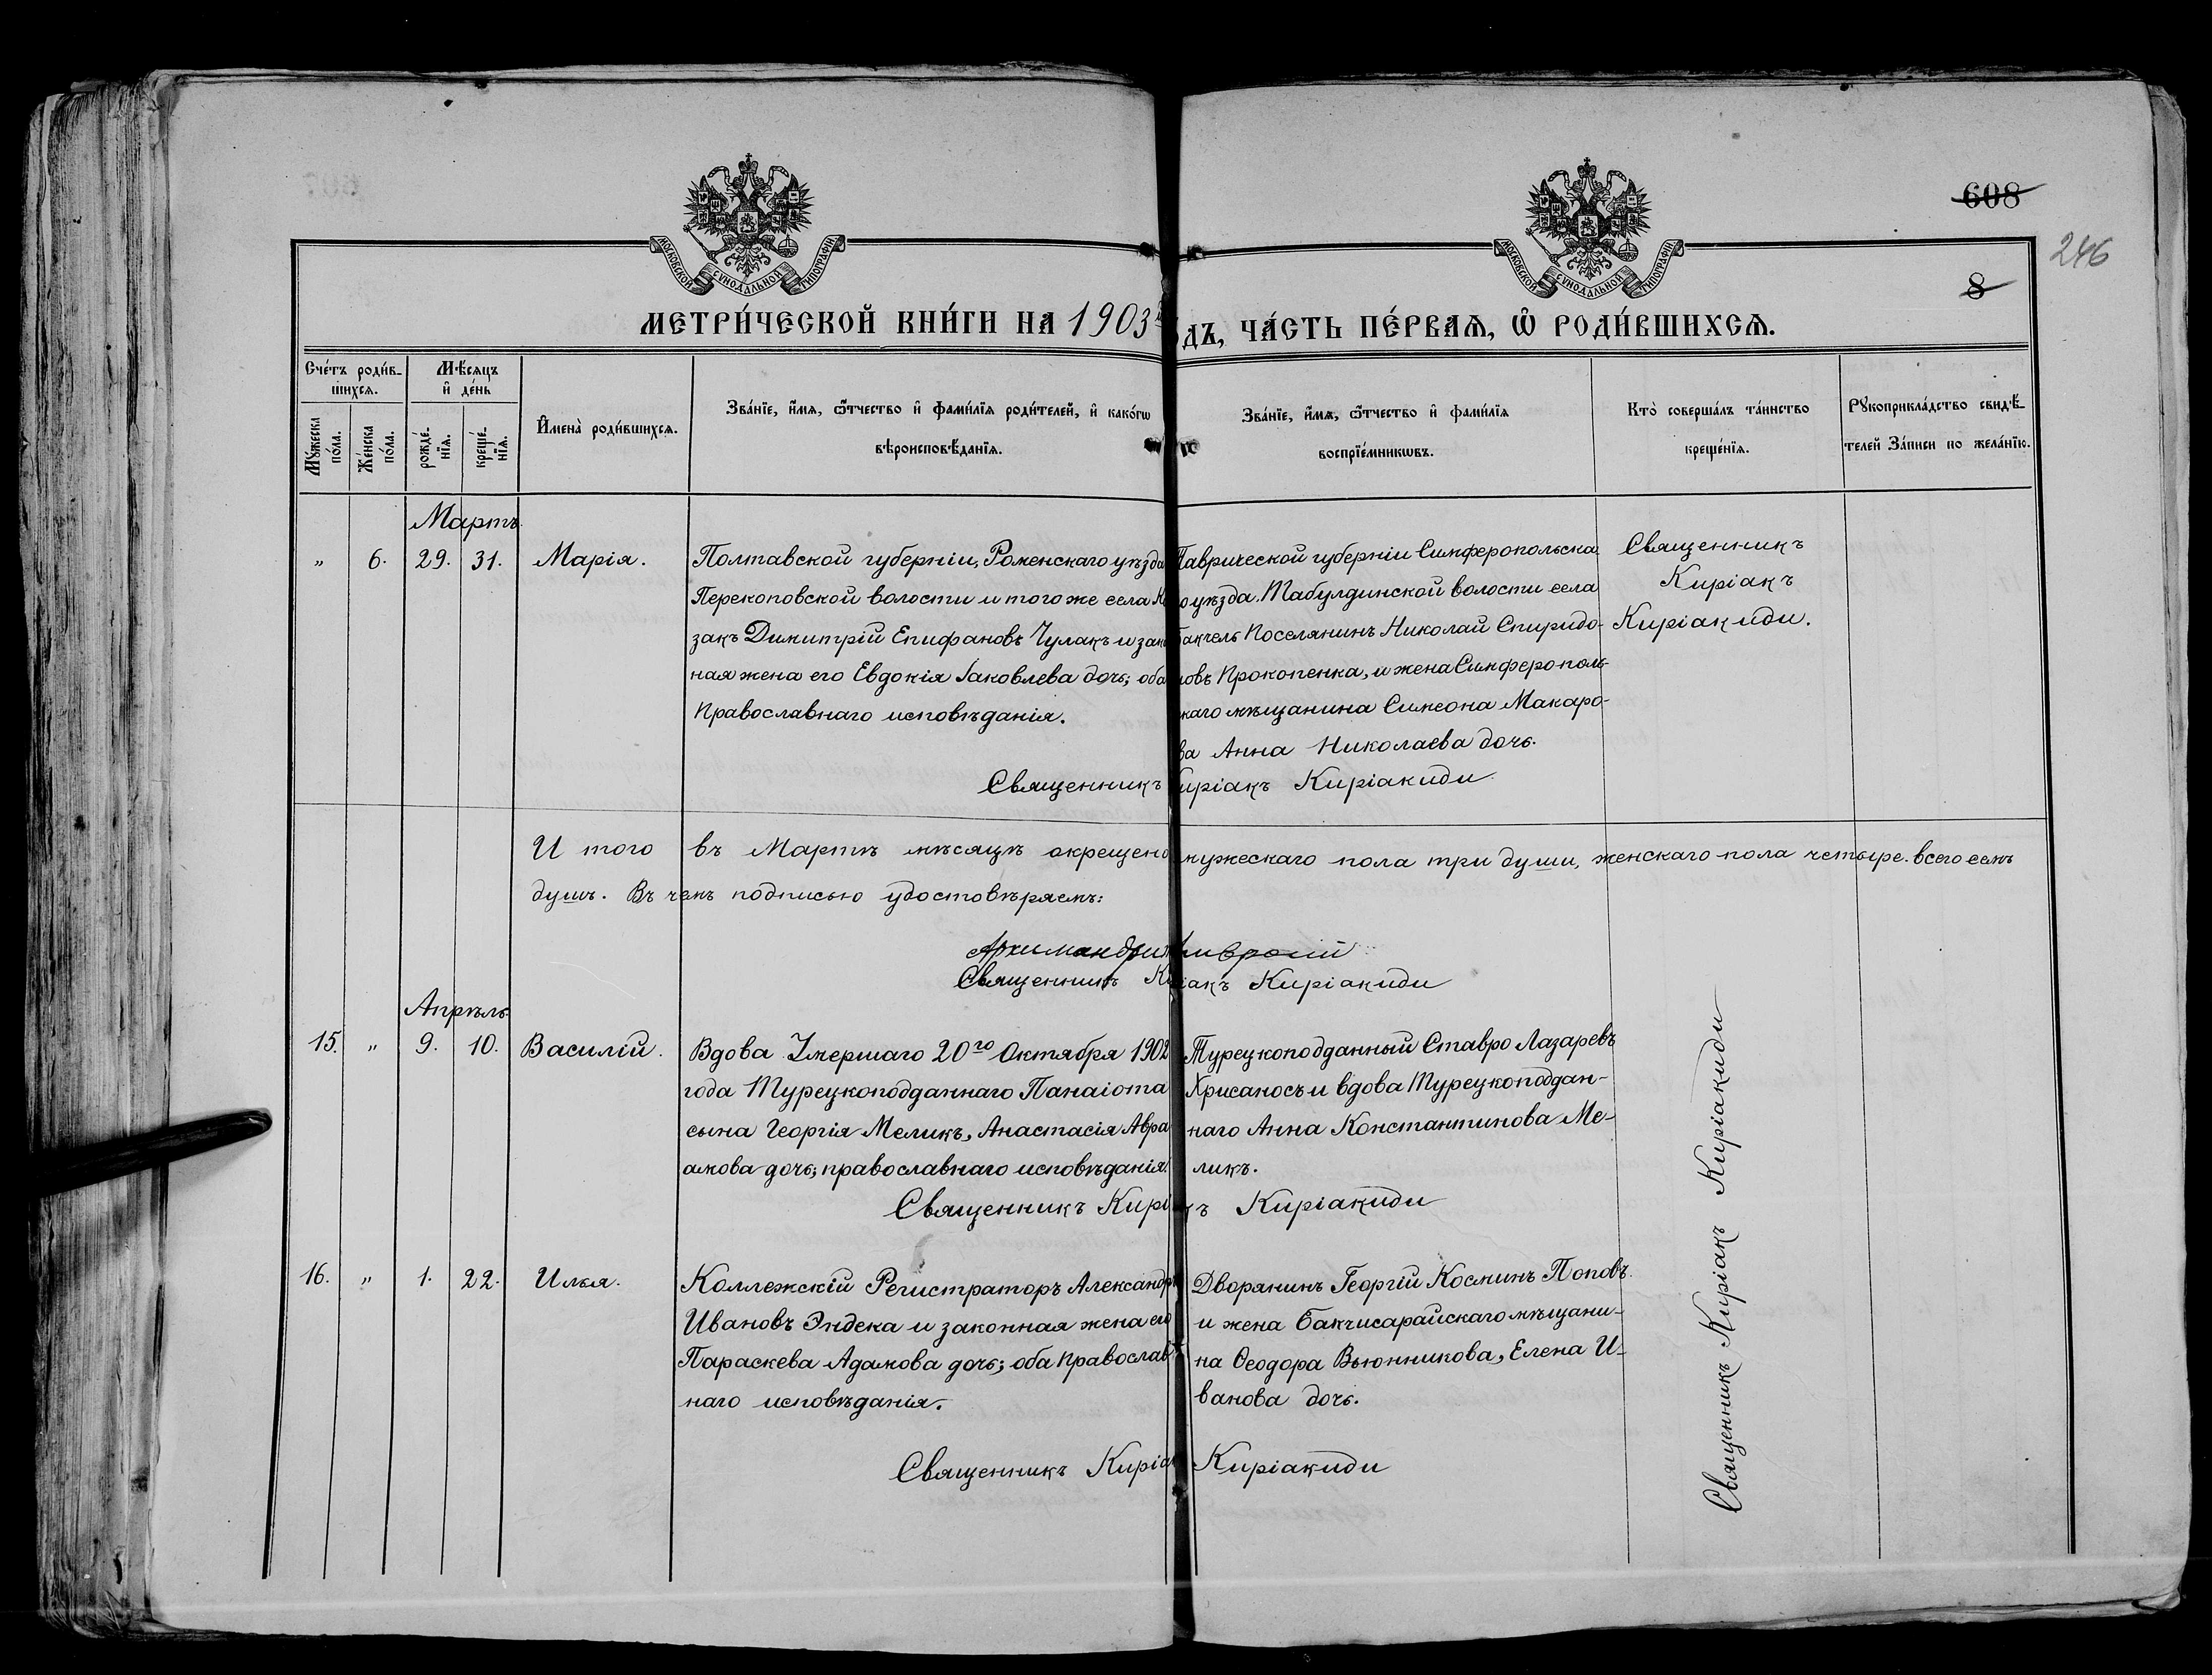 МОСКОВСКОЙ СѴНОДАЛЬНОЙ ТИПОГРАФІИ
МОСКОВСКОЙ СѴНОДАЛЬНОЙ ТИПОГРАФІИ
608
246
8
МЕТРИ́ЧЕСКОЙ КНИ́ГИ НА 1903й
ДЪ, ЧА́СТЬ ПЕ́РВАѦ, Ѽ РОДИ́ВШИХСѦ.
Сче́тъ роди́в-
шихсѧ.
Мѣ́сѧцъ
и҆ де́нь
Мꙋ́жеска
по́ла.
Же́нска
по́ла.
рожде́-
нїѧ.
креще́-
нїѧ.
И҆мена̀ роди́вшихсѧ.
Зва́нїе, и҆́мѧ, ѻ҆́тчество и҆ фами́лїѧ роди́телей, и҆ како́гѡ
вѣроисповѣ́данїѧ.
Зва́нїе, и҆́мѧ, ѻ҆́тчество и҆ фами́лїѧ
воспрїе́мникѡвъ.
Кто̀ соверша́лъ та́инство
креще́нїѧ.
Рꙋкоприкла́дство свидѣ́-
телей За́писи по жела́нїю.
Мартъ.
" 6. 29. 31. Марія.
Полтавской губерніи, Роменскаго уѣзда
Перекоповской волости и того же села К
закъ Димитрій Епифановъ Чулакъ и зако
ная жена его Евдокія Іаковлева дочь; оба
Православнаго исповѣданія.
Таврической губерніи Симферопольска
о уѣзда. Табулдинской волости села
Бакчель Поселянинъ Николай Спиридо-
новъ Прокопенка, и жена Симферополь-
скаго мѣщанина Симеона Макаро-
ва Анна Николаева дочь.
Священникъ
Киріакъ
Киріакиди.
Священникъ Киріакъ Киріакиди
И того въ Мартѣ мѣсяцѣ окрещено мужескаго пола три души, женскаго пола четыре. всего семь
душъ. Въ чемъ подписью удостовѣряемъ:
Архимандри
Священникъ Киріакъ Киріакиди
Апрѣль
15. " 9. 10. Василій.
Вдова Умершаго 20го Октября 1902
года Турецкоподданнаго Панаіота
сына Георгія Меликъ, Анастасія Авра
амова дочь; православнаго исповѣданія.
Турецкоподданный Ставро Лазаревъ
Хрисаносъ и вдова Турецкоподдан-
наго Анна Константинова Ме-
ликъ.
Священникъ Киріакъ Киріакиди
16. " 1. 22. Илья.
Коллежскій Регистраторъ Александръ
Ивановъ Эндека и законная жена его
Параскева Адамова дочь; оба Православ
наго исповѣданія.
Дворянинъ Георгій Косминъ Поповъ.
и жена Бакчисарайскаго мѣщани-
на Ѳеодора Вьюнникова, Елена И-
ванова дочь.
Священникъ Киріакъ Киріакиди
Священникъ Киріакъ Киріакиди